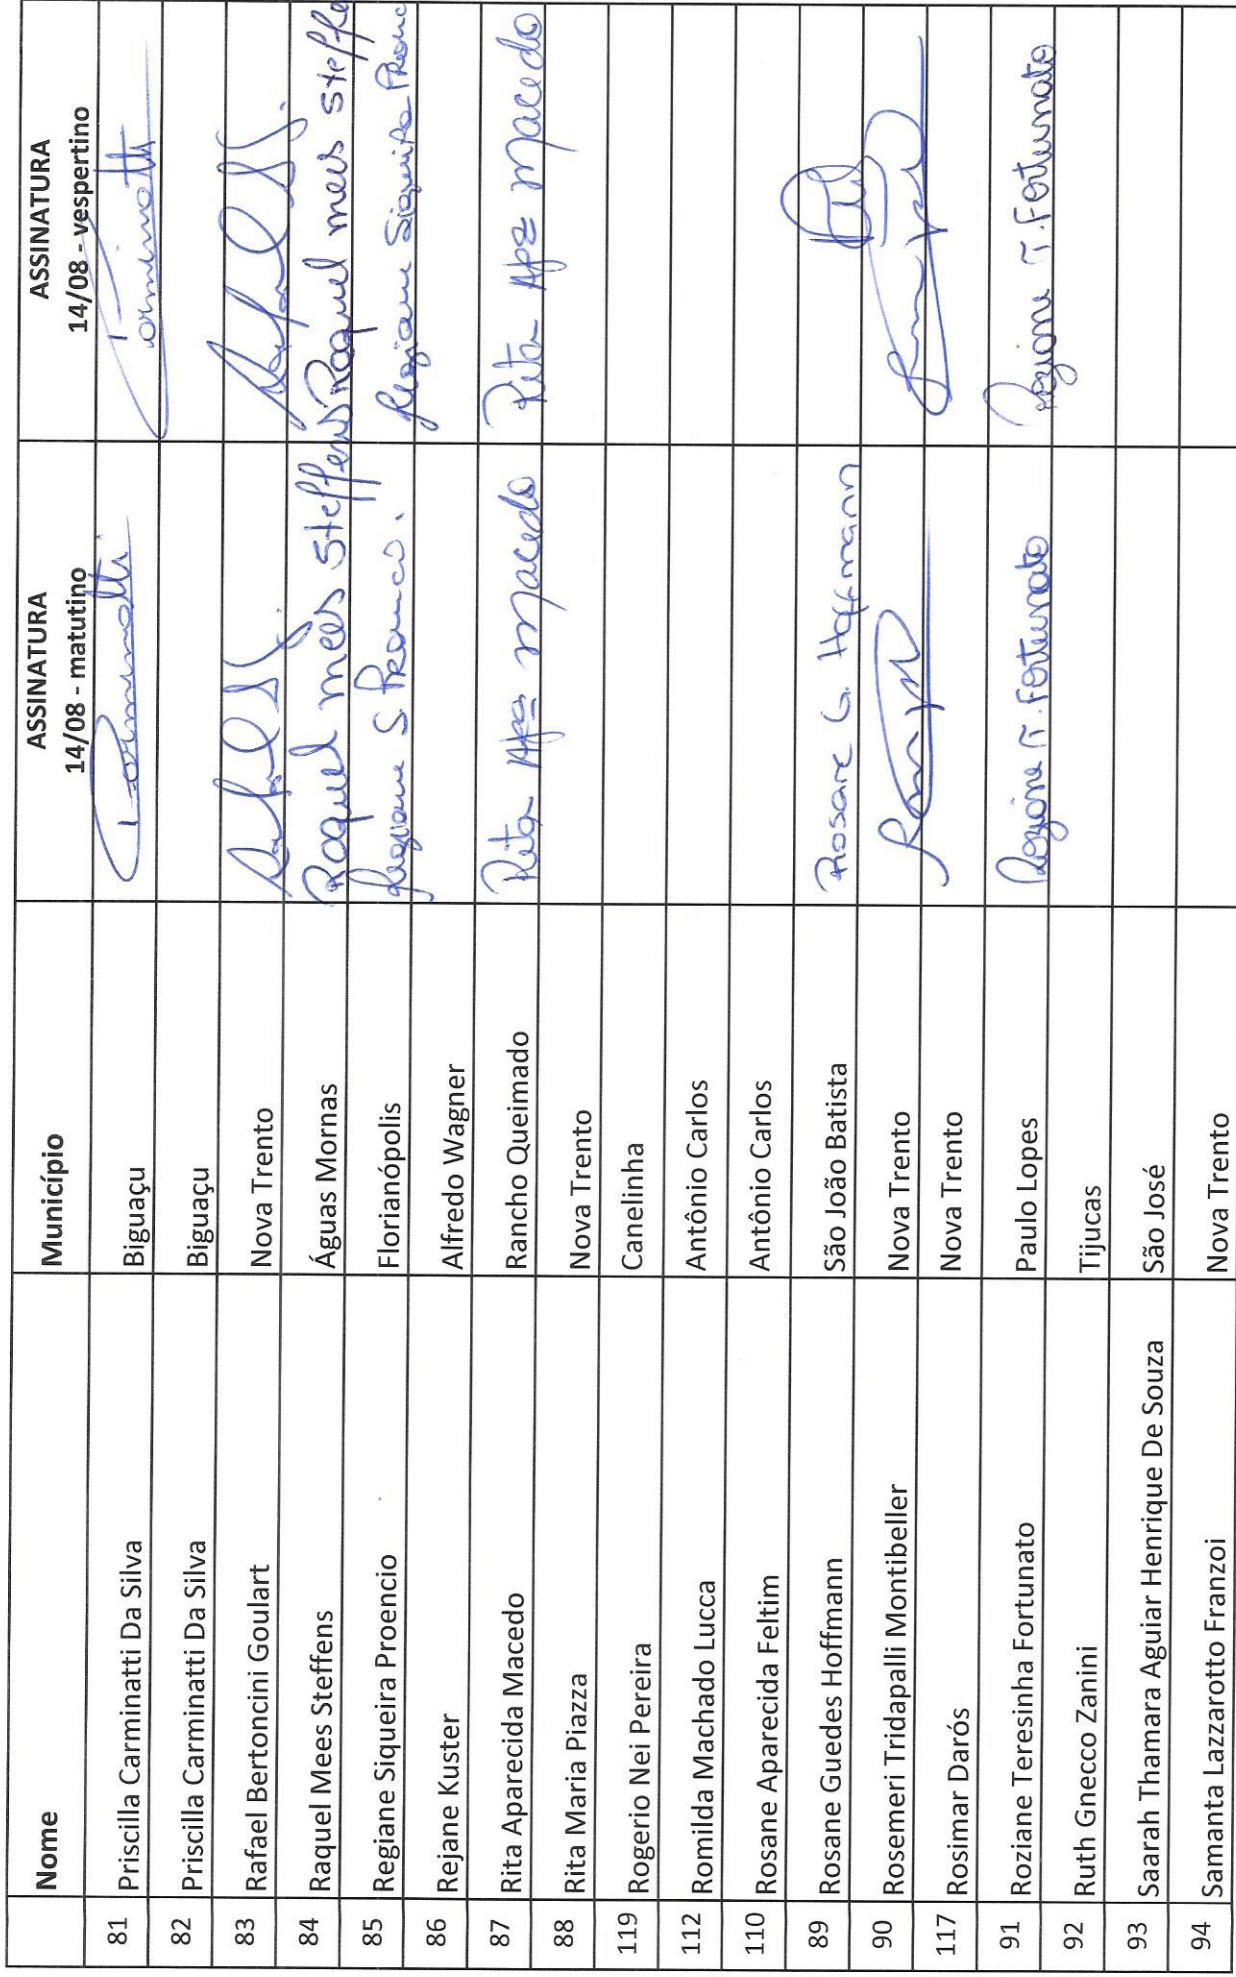 Nome Município ASSINATURA 14/08 - matutino ASSINATURA 14/08 - vespertino
81 Priscilla Carminatti Da Silva Biguaçu Carminatti Carminatti
82 Priscilla Carminatti Da Silva Biguaçu
83 Rafael Bertoncini Goulart Nova Trento
84 Raquel Mees Steffens Águas Mornas Raquel mees Steffens Raquel mees Steffe
85 Regiane Siqueira Proencio Florianópolis Regiane S Regiane Siqueira
86 Rejane Kuster Alfredo Wagner
87 Rita Aparecida Macedo Rancho Queimado Rita Apa macedo Rita Apa macedo
88 Rita Maria Piazza Nova Trento
119 Rogerio Nei Pereira Canelinha
112 Romilda Machado Lucca Antônio Carlos
110 Rosane Aparecida Feltim Antônio Carlos
89 Rosane Guedes Hoffmann São João Batista Rosane G. Hoffmann
90 Rosemeri Tridapalli Montibeller Nova Trento
117 Rosimar Darós Nova Trento
91 Roziane Teresinha Fortunato Paulo Lopes Roziane T. Fortunato Roziane T. Fortunato
92 Ruth Gnecco Zanini Tijucas
93 Saarah Thamara Aguiar Henrique De Souza São José
94 Samanta Lazzarotto Franzoi Nova Trento